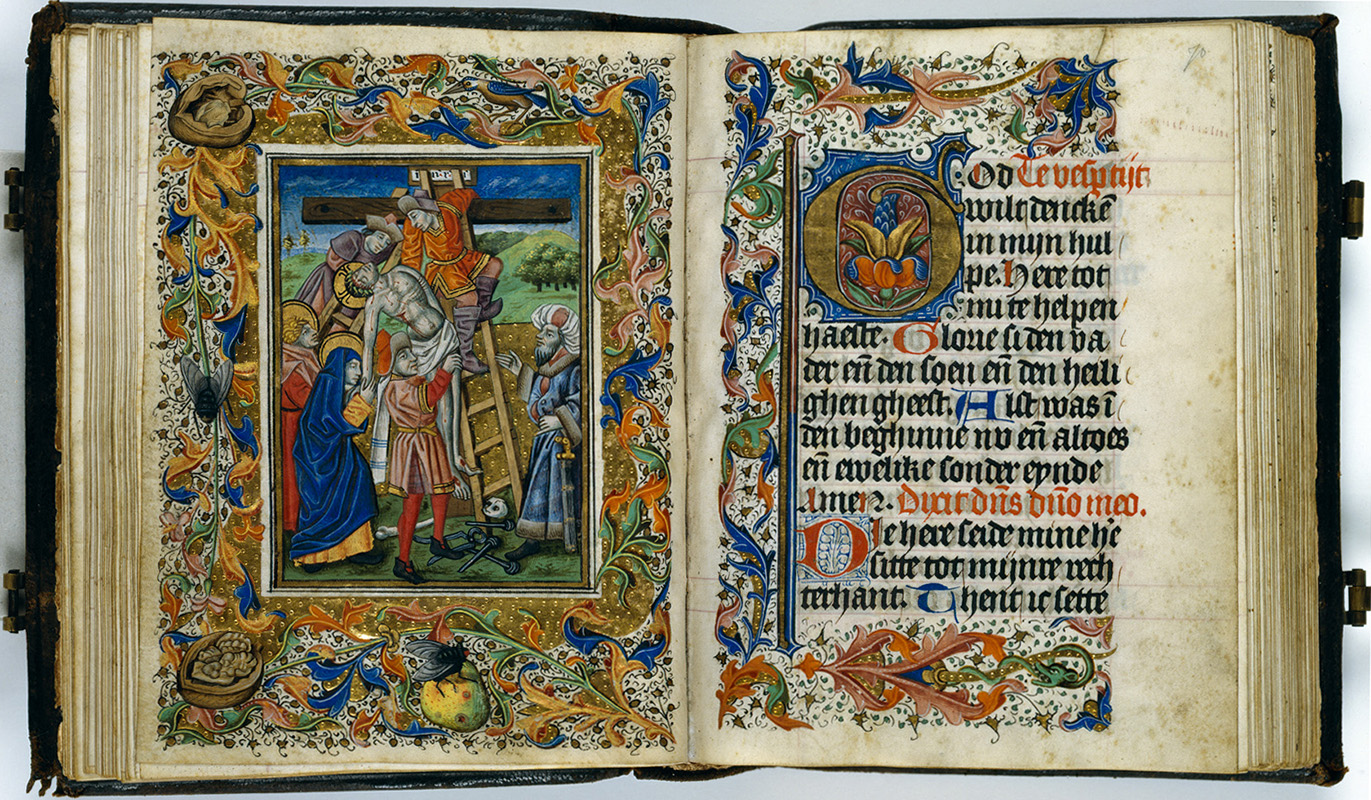 I·N·R·I
70
God Te vesptijt
wilt denckē
in mijn hul
pe. Here tot
mi te helpen
haeste. Glorie si den va
der eñ den soen eñ den heili
ghen gheest. Alst was ī
den beghinne nv eñ altoes
eñ ewelike sonder eynde
Amen. Dixit dñs dño meo.
Die here seide mine hē
sitte tot mijnre rech
terhant. Thent ic sette